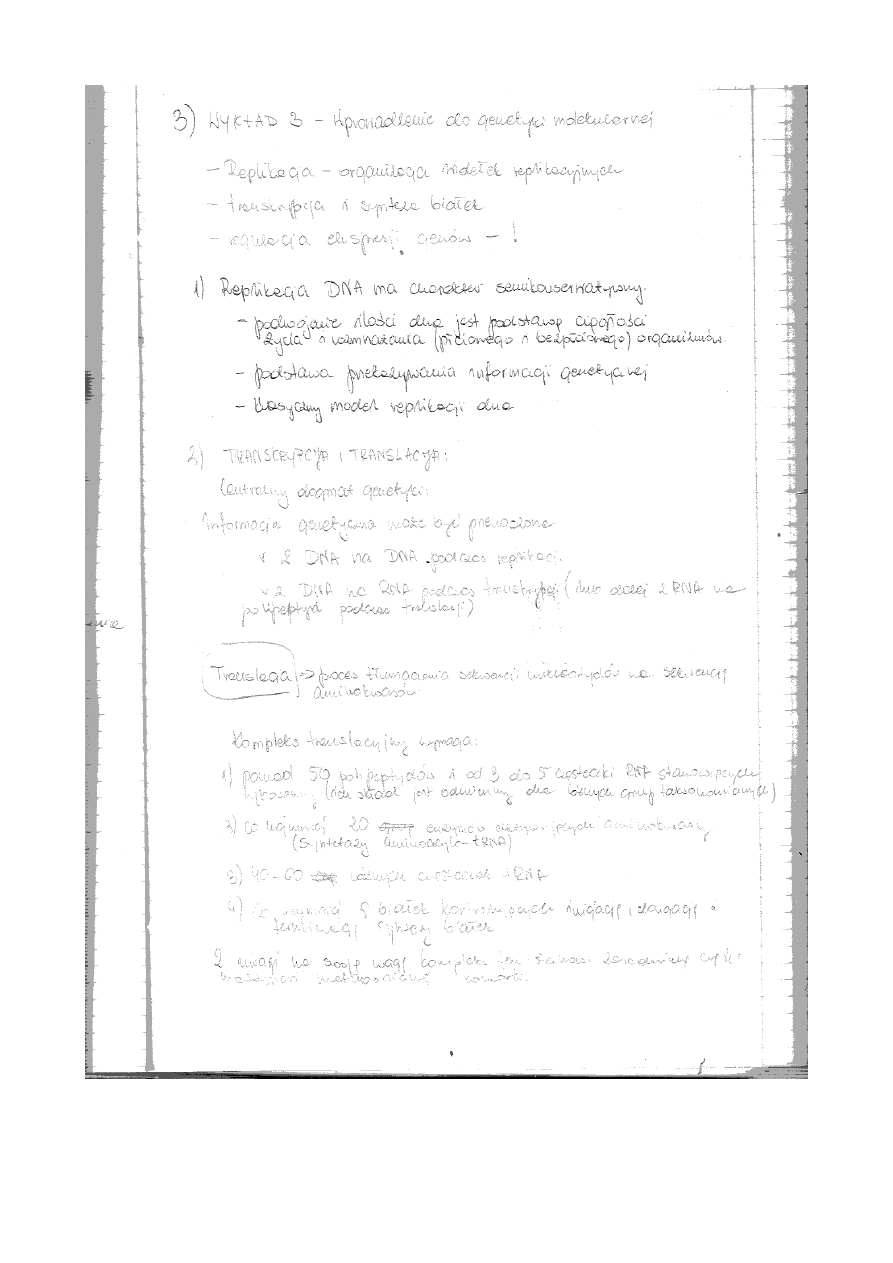 3) WYKŁAD 3 – Wprowadzenie do genetyki molekularnej
– Replikacja – organizacja widełek replikacyjnych
– transkrypcja i synteza białek
– regulacja ekspresji genów – !
1) Replikacja DNA ma charakter semikonserwatywny.
– podwojenie ilości dna jest podstawą ciągłości
życia i rozmnażania (płciowego i bezpłciowego) organizmów.
– podstawa przekazywania informacji genetycznej
– klasyczny model replikacji dna
2) TRANSKRYPCJA I TRANSLACJA:
Centralny dogmat genetyki:
Informacja genetyczna może być przenoszona
v z DNA na DNA podczas replikacji.
v z DNA na RNA podczas transkrypcji ( dalej z RNA na
polipeptyd podczas translacji)
Translacja -> proces tłumaczenia sekwencji nukleotydów na sekwencję
aminokwasów
Kompleks translacyjny wymaga:
1) ponad 50 polipeptydów i od 3 do 5 cząsteczki RNA stanowiących
rybosomy (ich skład jest odmienny dla różnych grup taksonomicznych)
2) co najmniej 20 enzymów aminokwasy
(Syntetazy aminoacylo-tRNA)
3) 40-60 różnych cząsteczek tRNA
4) co najmniej białek kontrolujących inicjację, elongację i
terminację syntezy białek
Z uwagi na swoją wagę kompleks ten stanowi
komórki.